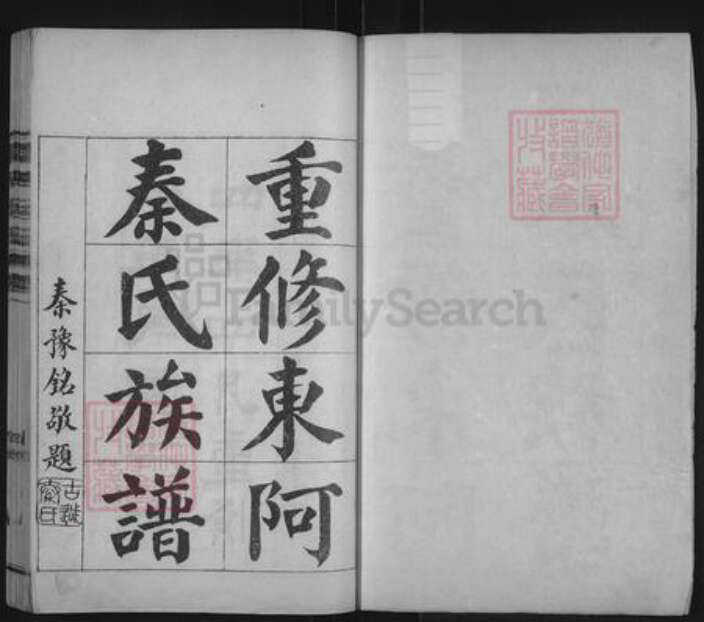 重修東阿
秦氏族譜
秦豫銘敬題
FamilySearch